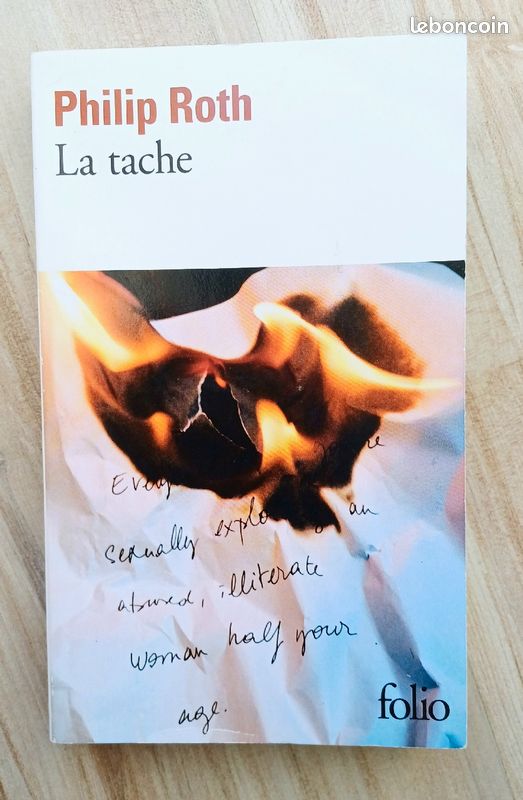 leboncoin
Philip Roth
La tache
sexually explo
an
abused, illiterate
woman half your
age.
folio